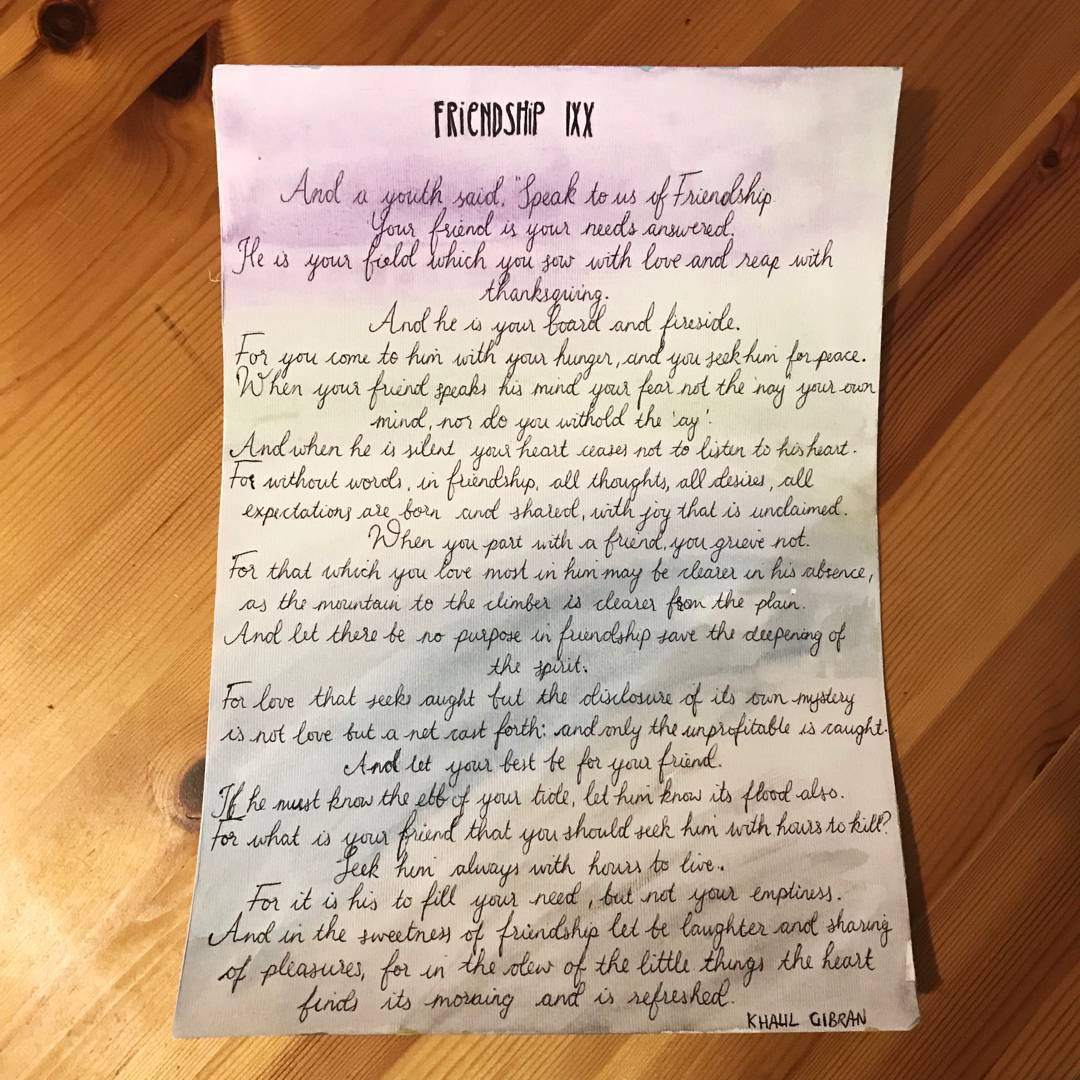 FRiENDSHiP IXX
And a youth said, "Speak to us of Friendship
Your friend is your needs answered.
He is your field which you sow with love and reap with
thanksgiving.
And he is your board and fireside.
For you come to him with your hunger, and you seek him for peace.
When your friend speaks his mind your fear not the 'nay' your own
mind, nor do you withold the 'ay'.
And when he is silent your heart ceases not to listen to his heart.
For without words, in friendship, all thoughts, all desires, all
expectations are born and shared, with joy that is unclaimed.
When you part with a friend, you grieve not.
For that which you love most in him may be clearer in his absence,
as the mountain to the climber is clearer from the plain.
And let there be no purpose in friendship save the deepening of
the spirit.
For love that seeks aught but the disclosure of its own mystery
is not love but a net cast forth: and only the unprofitable is caught.
And let your best be for your friend.
If he must know the ebb of your tide, let him know its flood also.
For what is your friend that you should seek him with hours to kill?
Seek him always with hours to live.
For it is his to fill your need, but not your emptiness.
And in the sweetness of friendship let be laughter and sharing
of pleasures, for in the dew of the little things the heart
finds its morning and is refreshed.
KHALIL GIBRAN